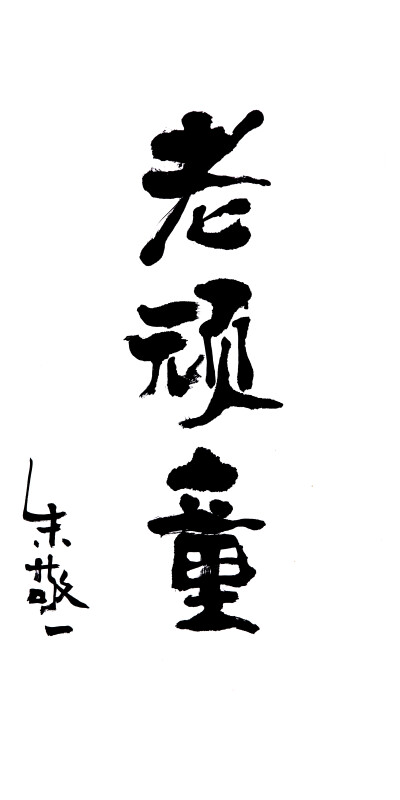 老顽童
朱敬一